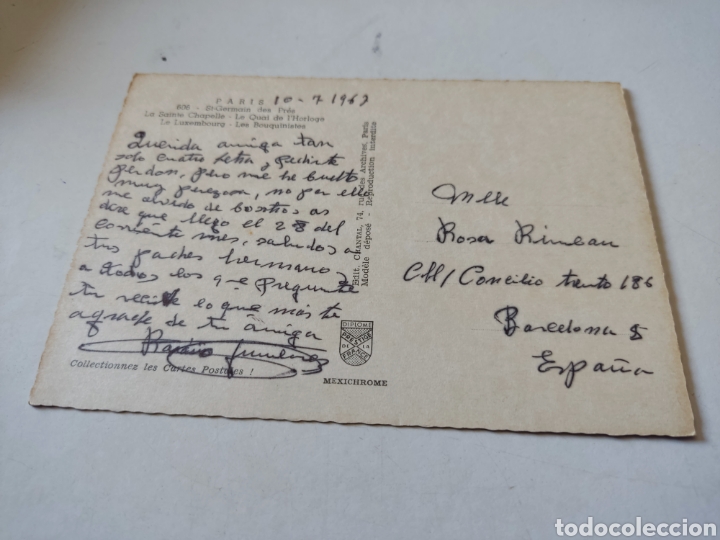 PARIS 10-7 1967
806 - St-Germain des Prés
La Sainte Chapelle - Le Quai de l'Horloge
Le Luxembourg - Les Bouquinistes
Querida amiga tan
solo cuatro letra, pedirte
perdon, pero me he buelto
muy peresosa, no por ello
me olvido de bosotros os
dese que llego el 28 del
corriente mes, saludos a
tus padres hermano,
a todos los que pregunte
tu recibe lo que más te
aprade de tu amiga
Collectionnez les Cartes Postales !
Edit. CHANTAL, 74, rue des Archives, Paris
Modèle déposé - Reproduction interdite
DIPLOME
PRESTIGE
DE LA
FRANCE
MEXICHROME
Mlle
Rosa Rimbau
CH/ Concilio trento 186
Barcelona 5
España
todocoleccion